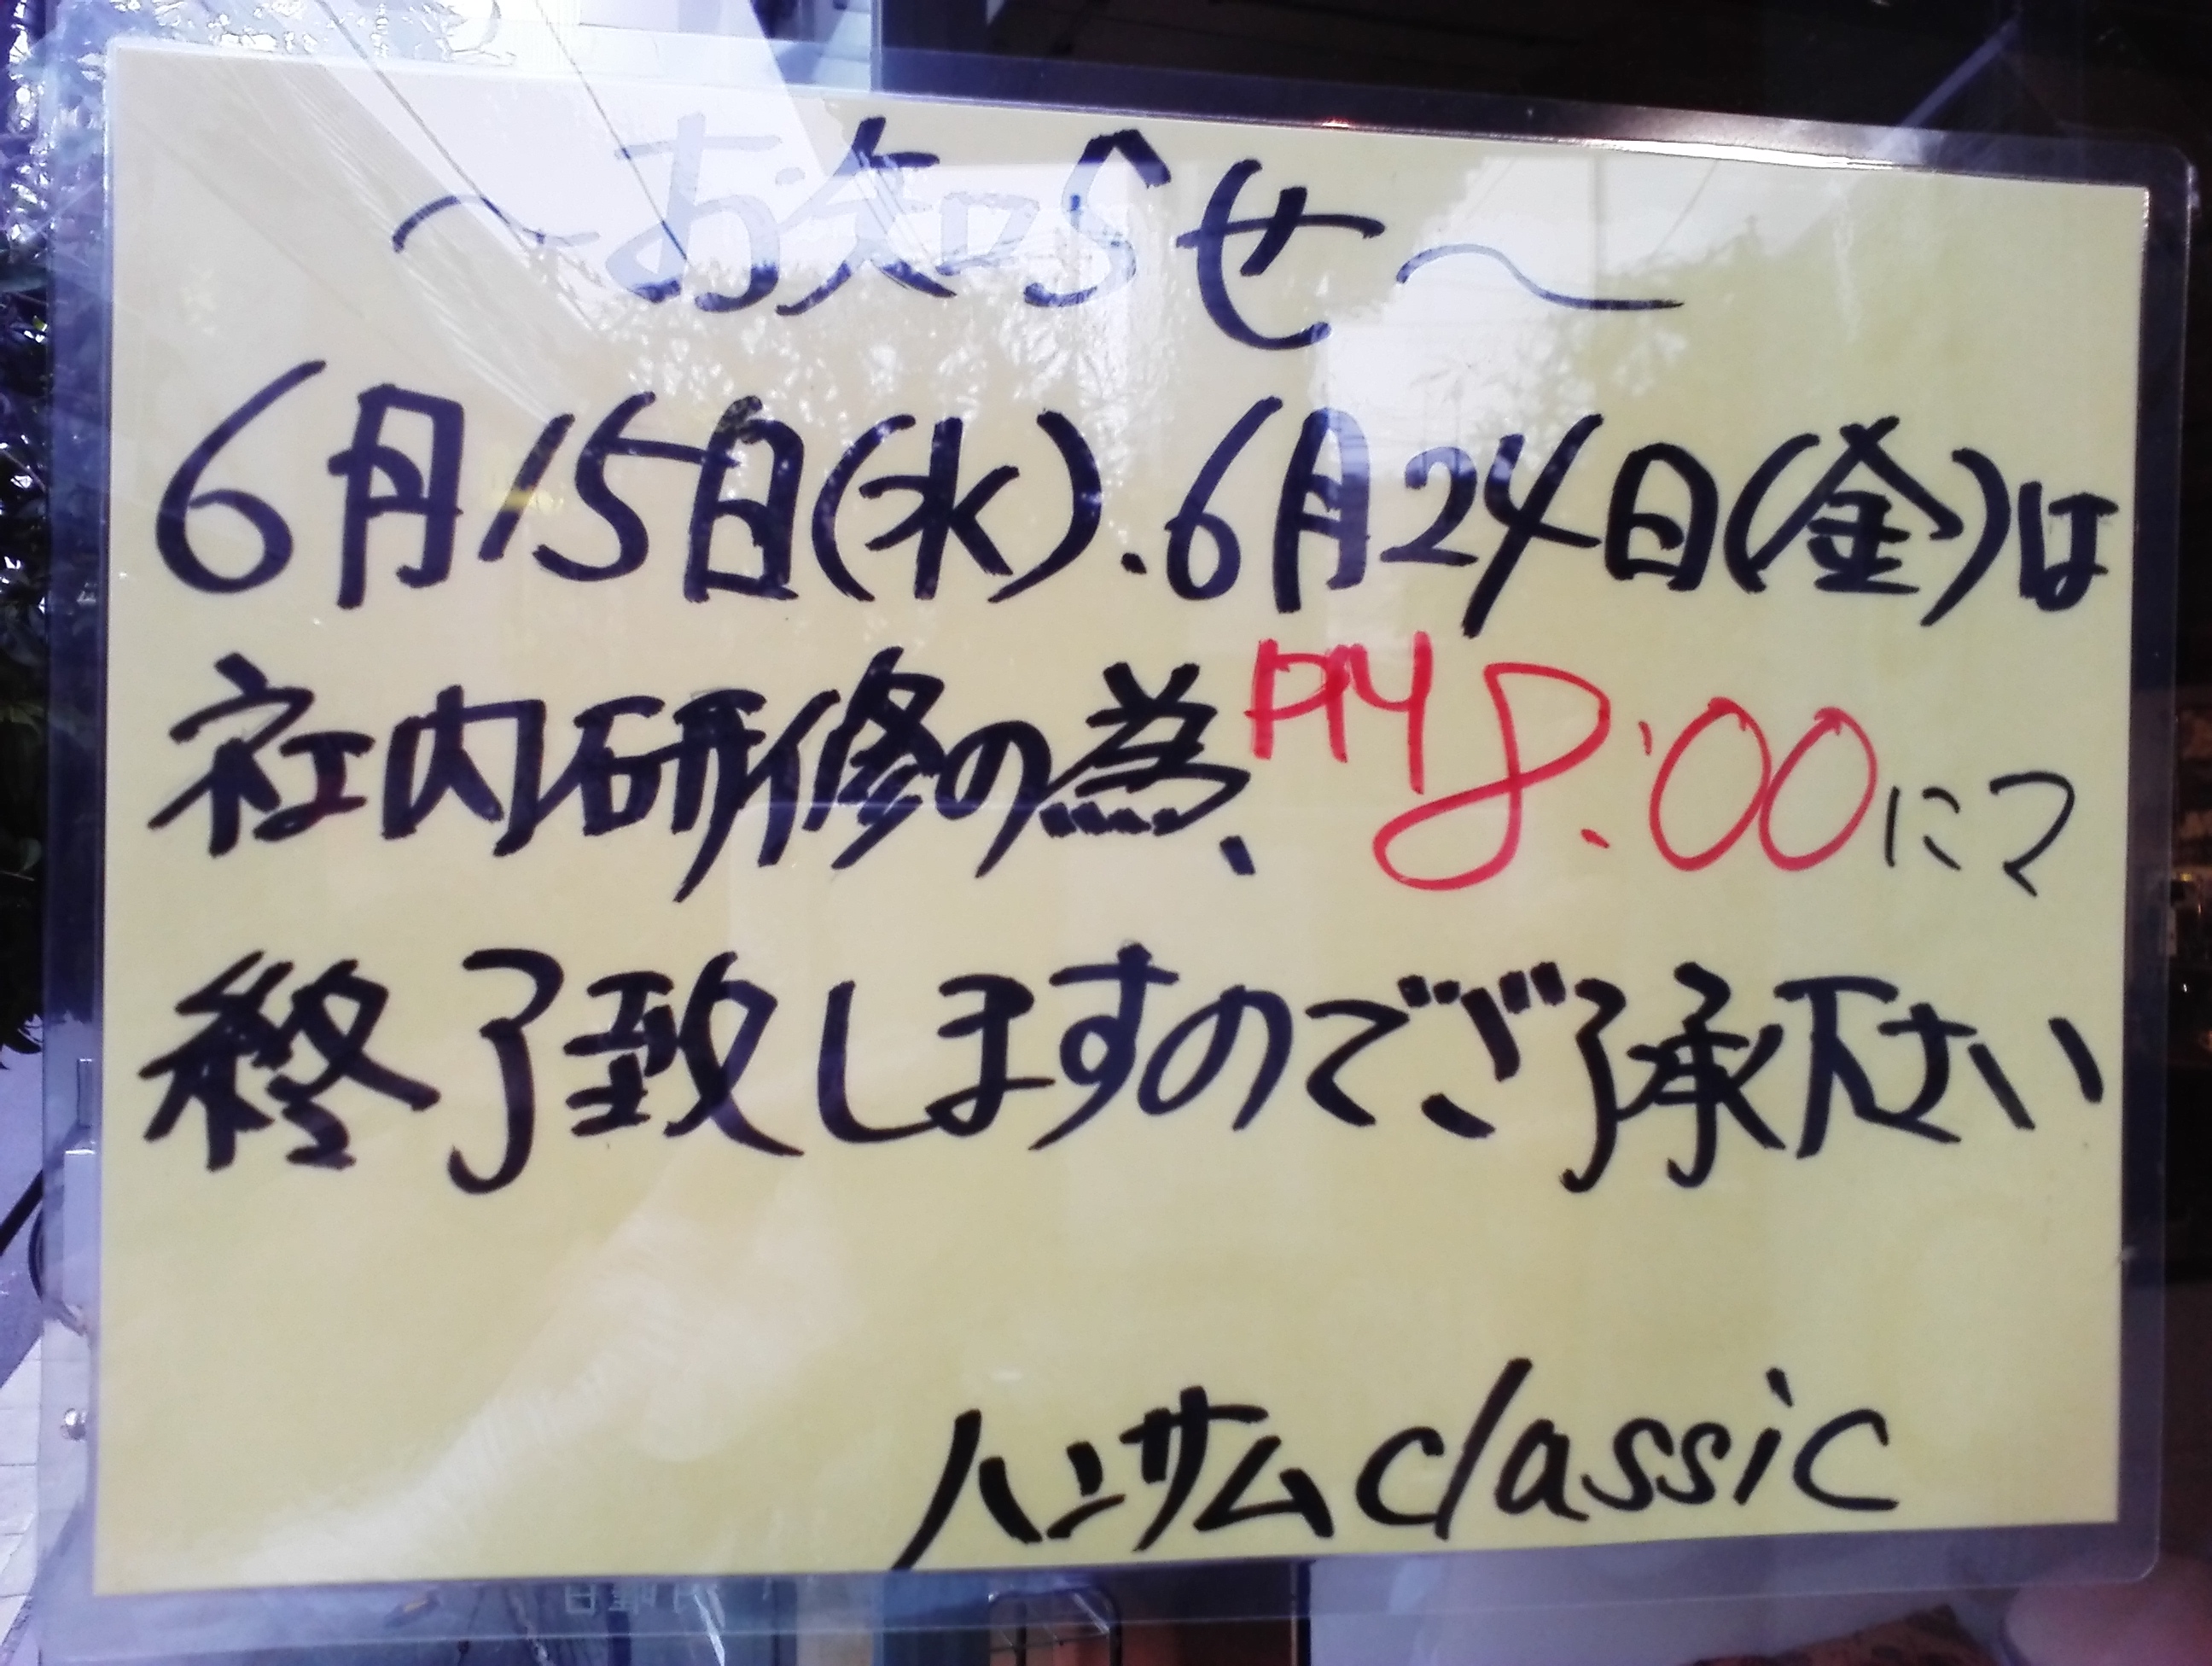 ～お知らせ～
6月15日(水).6月24日(金)は
社内研修の為、PM8:00にて
終了致しますのでご了承下さい
ハンサムclassic